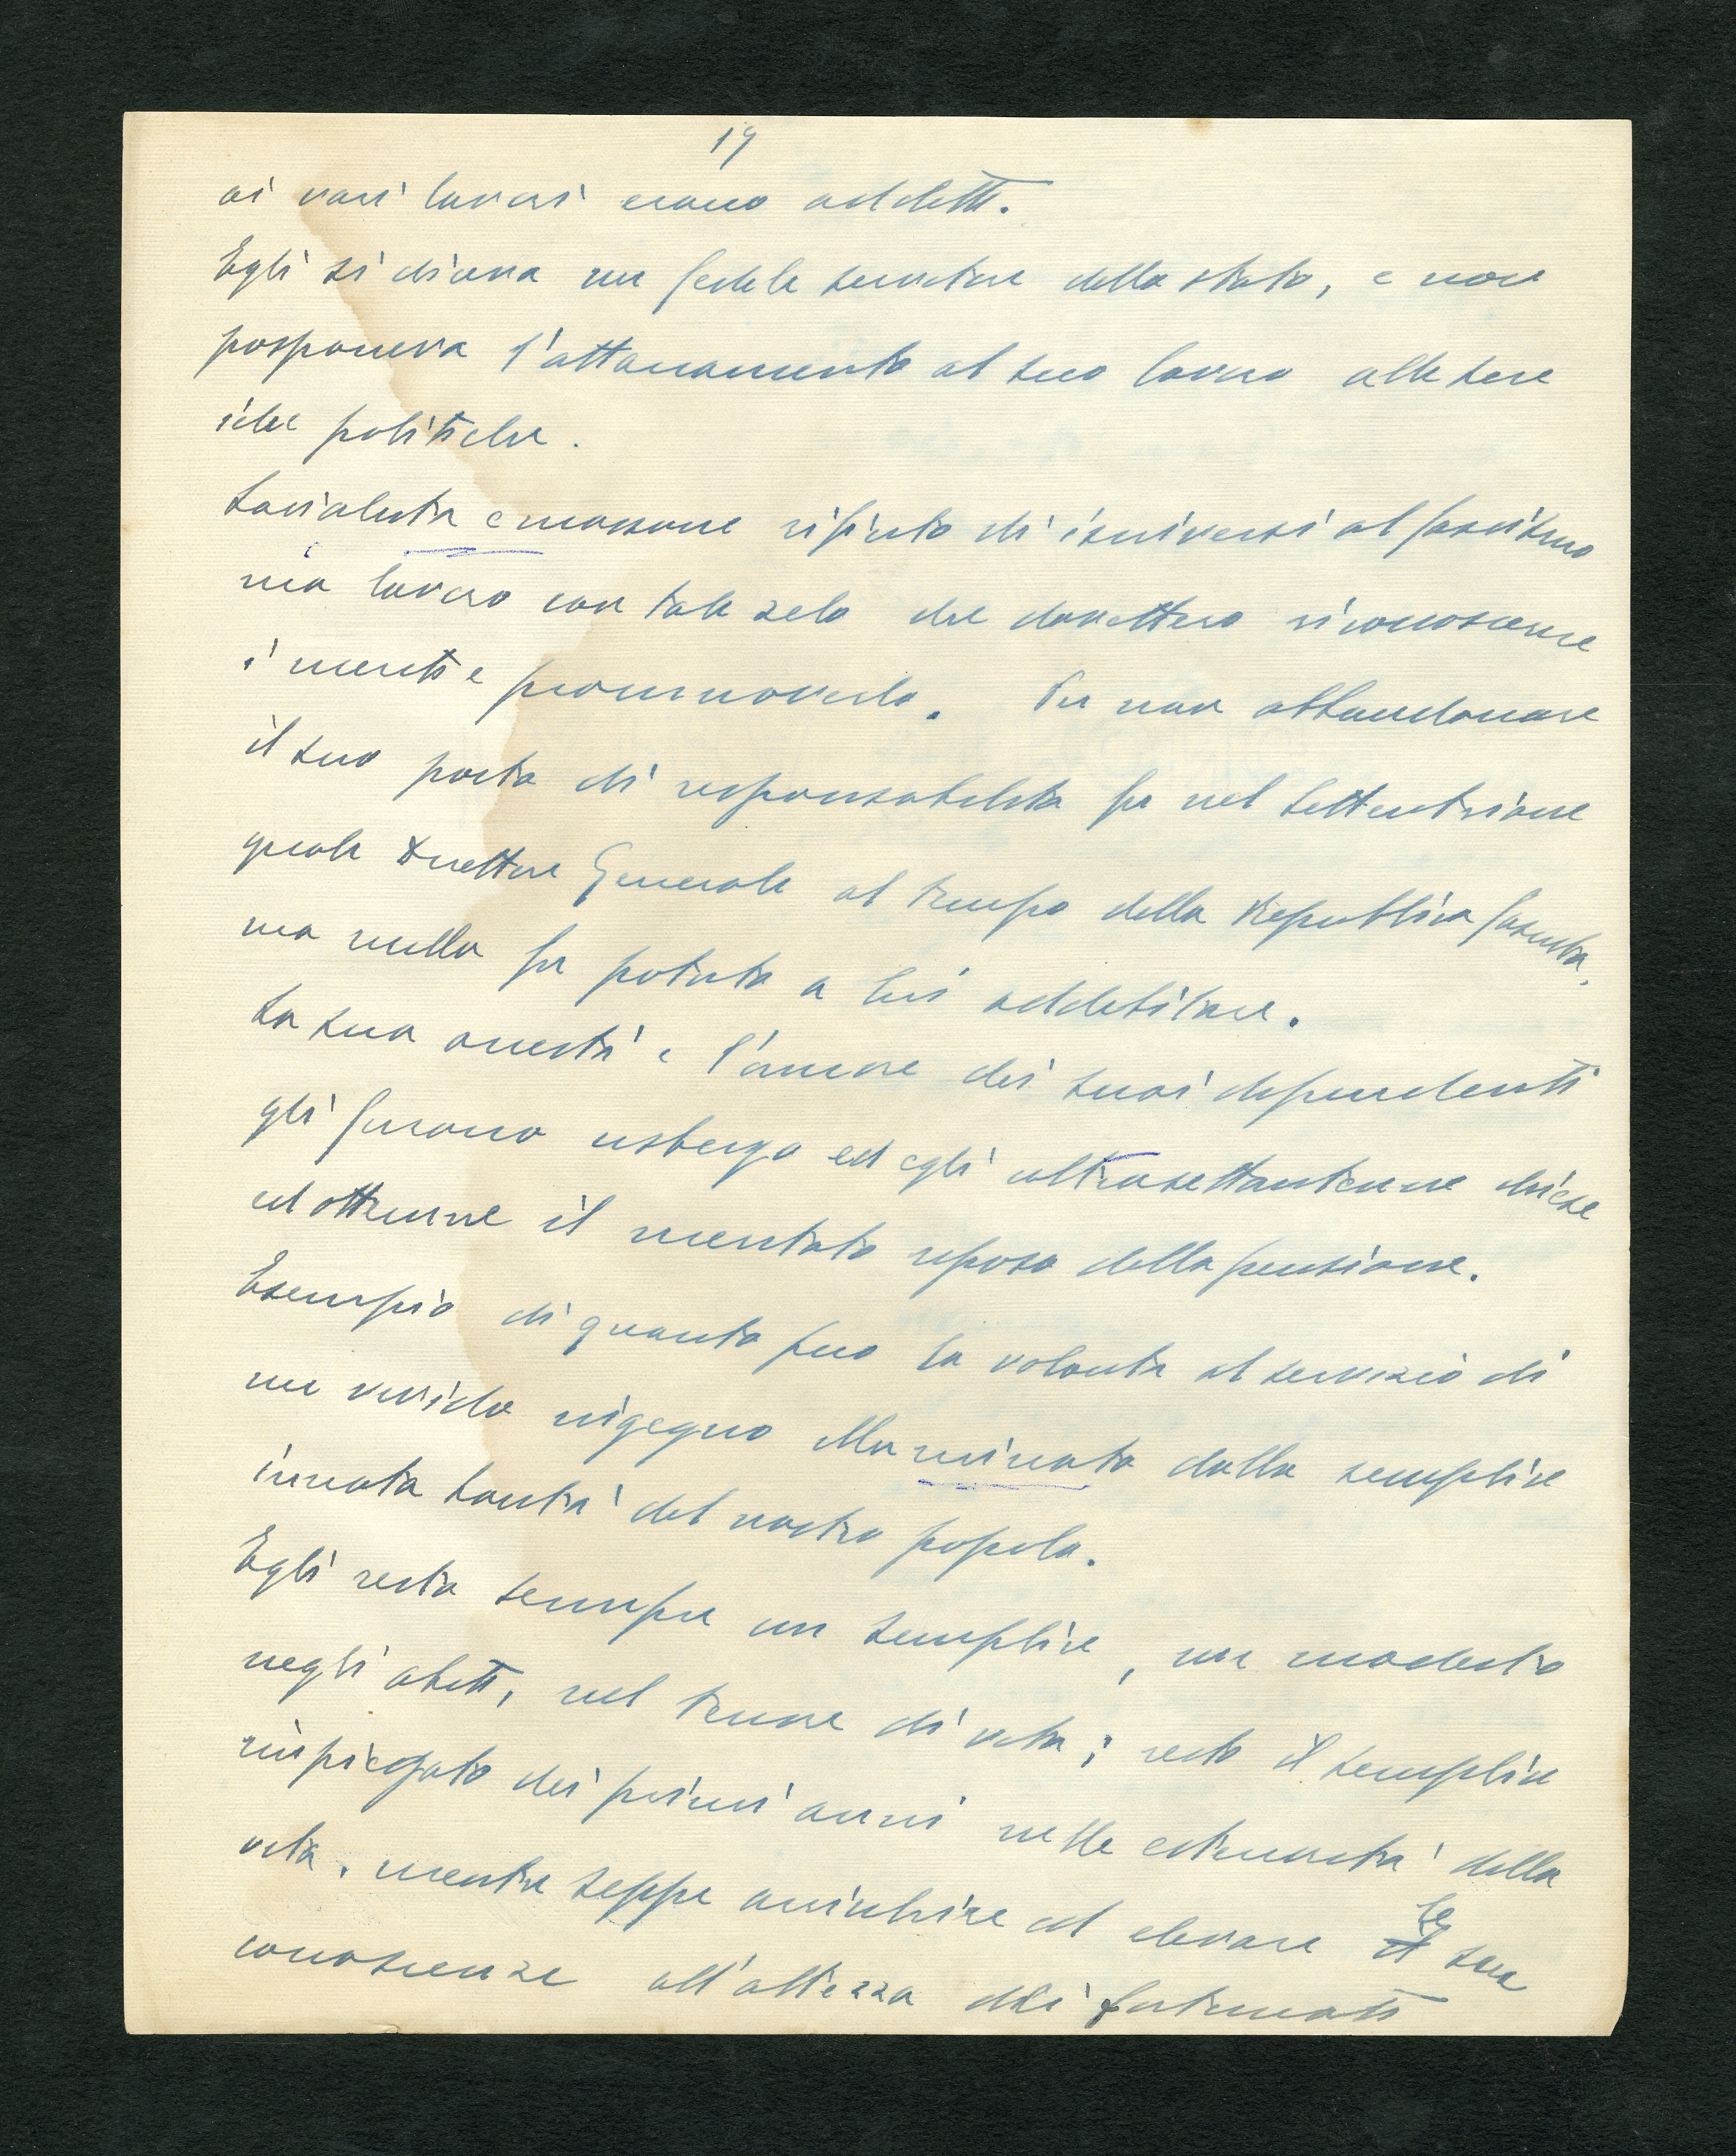 19
ai vari lavori erano addetti.
Egli si diceva un fedele servitore dello stato, e non
posponeva l'attaccamento al suo lavoro alle sue
idee politiche.
Socialista e massone rifiuto di iscriversi al fascismo
ma lavoro con tale zelo che dovettero riconoscerne
i meriti e promuoverlo. Per non abbandonare
il suo posto di responsabilita fu nel settentrione
quale Direttore Generale al tempo della Repubblica fascista,
ma nulla fu potuto a lui addebitare.
La sua onestà e l'amore dei suoi dipendenti
gli furono usbergo ed egli ultrasettantenne chiese
ed ottenne il meritato riposo della pensione.
Esempio di quanto puo la volonta al servizio di
un vivido ingegno illuminato dalla semplice
innata bontà del nostro popolo.
Egli resta sempre un semplice, un modesto
negli abiti, nel tenore di vita; resto il semplice
impiegato dei primi anni nelle esteriorità della
vita, mentre seppe arricchire ed elevare le sue
conoscenze all'altezza dei fortunati